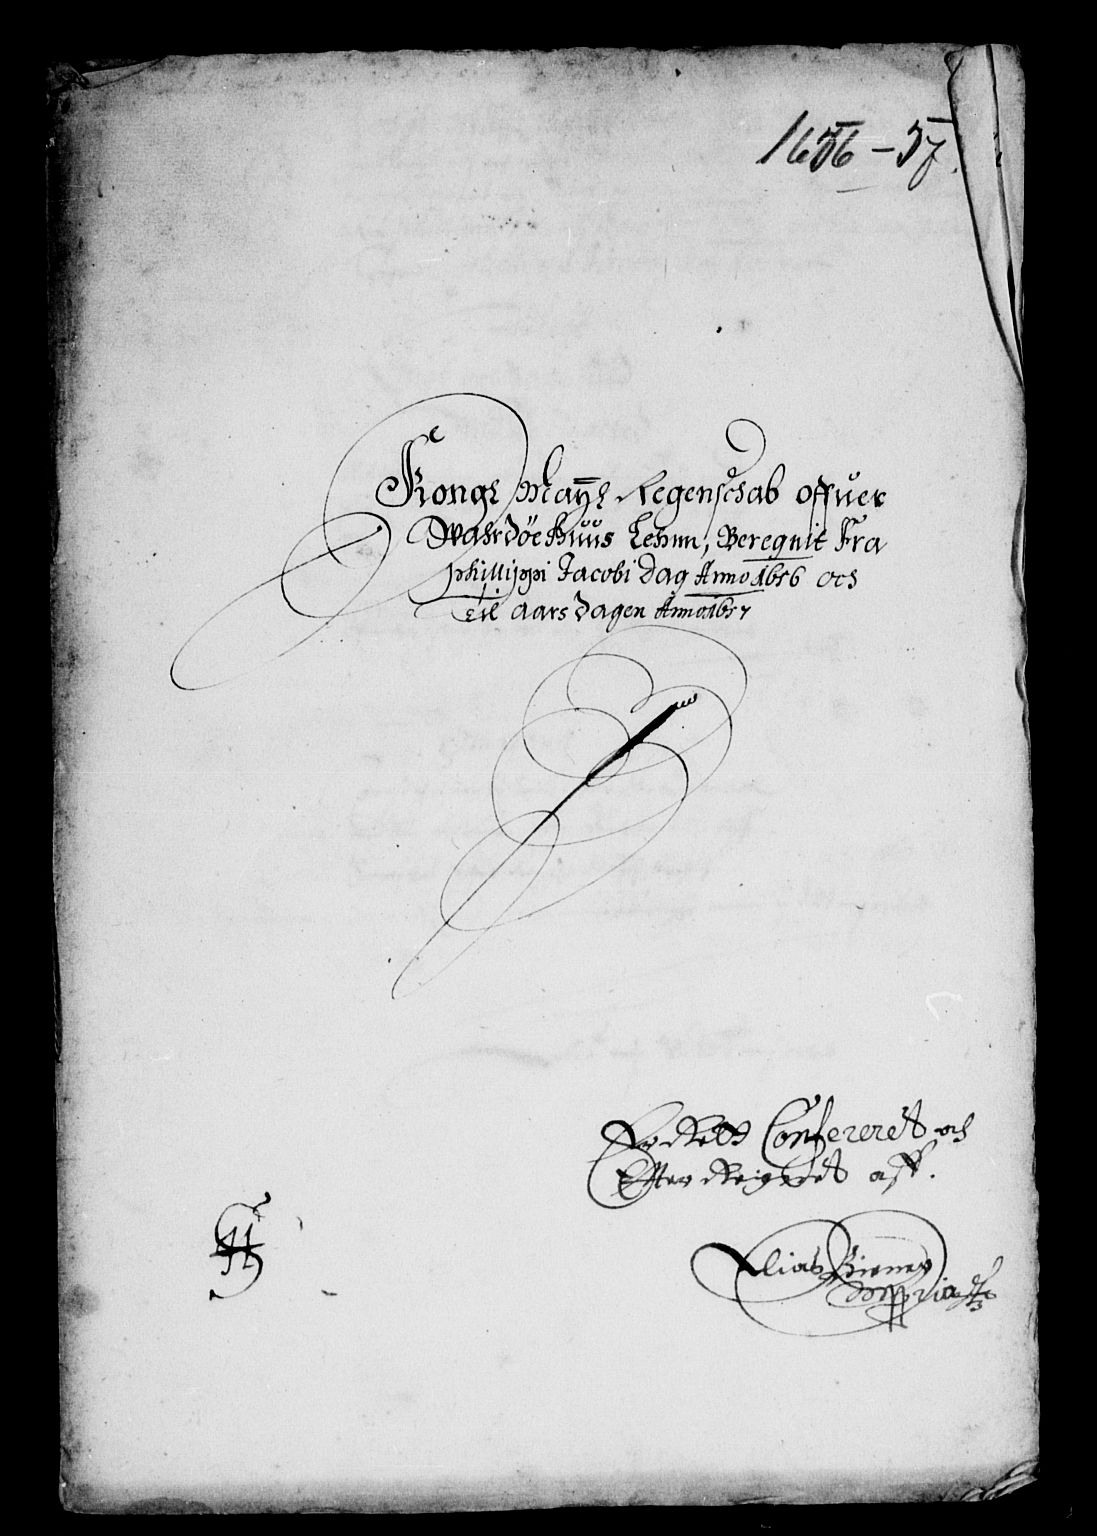 1656-57.
Kongl Maÿs Regenschab offuer
Wahrdöehuus Lehnn, Beregnit Fra
phillippi Jacobi dag Anno 1656 och
til aars dagen Anno 1657
Rett Confereret och
Effter Reignet aff.
Elias
mppria